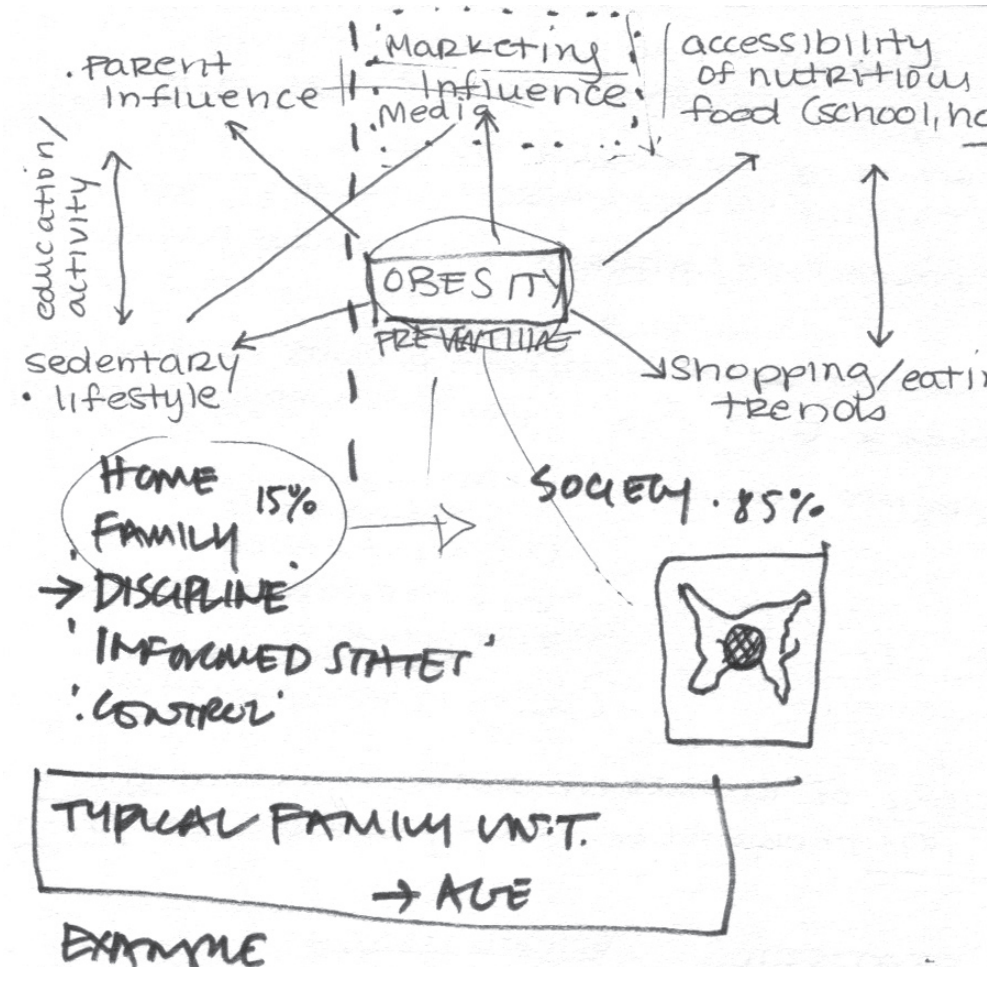 . Parent
Influence
Marketing
Influence
.Media
accessibility
of nutritious
food (school, ho
education/
activity
OBESITY
PREVENTITIVE
sedentary
• lifestyle
Shopping/eati
trends
HOME
15%
FAMILY
→ DISCIPLINE
'INFORMED STATET'
'CONTROL'
SOCIETY . 85%
TYPICAL FAMILY UNIT.
→ AGE
EXAMPLE